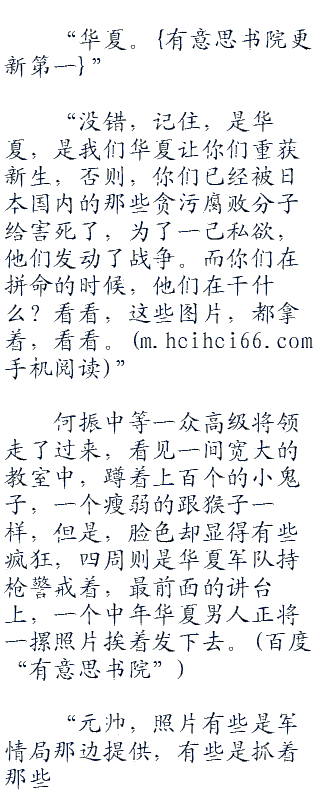 “华夏。{有意思书院更
新第一}”
“没错，记住，是华
夏，是我们华夏让你们重获
新生，否则，你们已经被日
本国内的那些贪污腐败分子
给害死了，为了一己私欲，
他们发动了战争。而你们在
拼命的时候，他们在干什
么？看看，这些图片，都拿
着，看看。(m.hcihci66.com
手机阅读)”
何振中等一众高级将领
走了过来，看见一间宽大的
教室中，蹲着上百个的小鬼
子，一个瘦弱的跟猴子一
样，但是，脸色却显得有些
疯狂，四周则是华夏军队持
枪警戒着，最前面的讲台
上，一个中年华夏男人正将
一摞照片挨着发下去。(百度
“有意思书院”)
“元帅，照片有些是军
情局那边提供，有些是抓着
那些